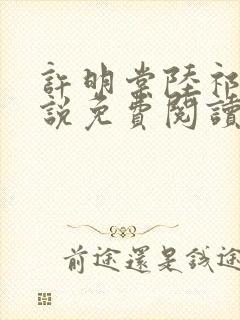 許明棠陸祁
說免費閱讀
前途還是錢途